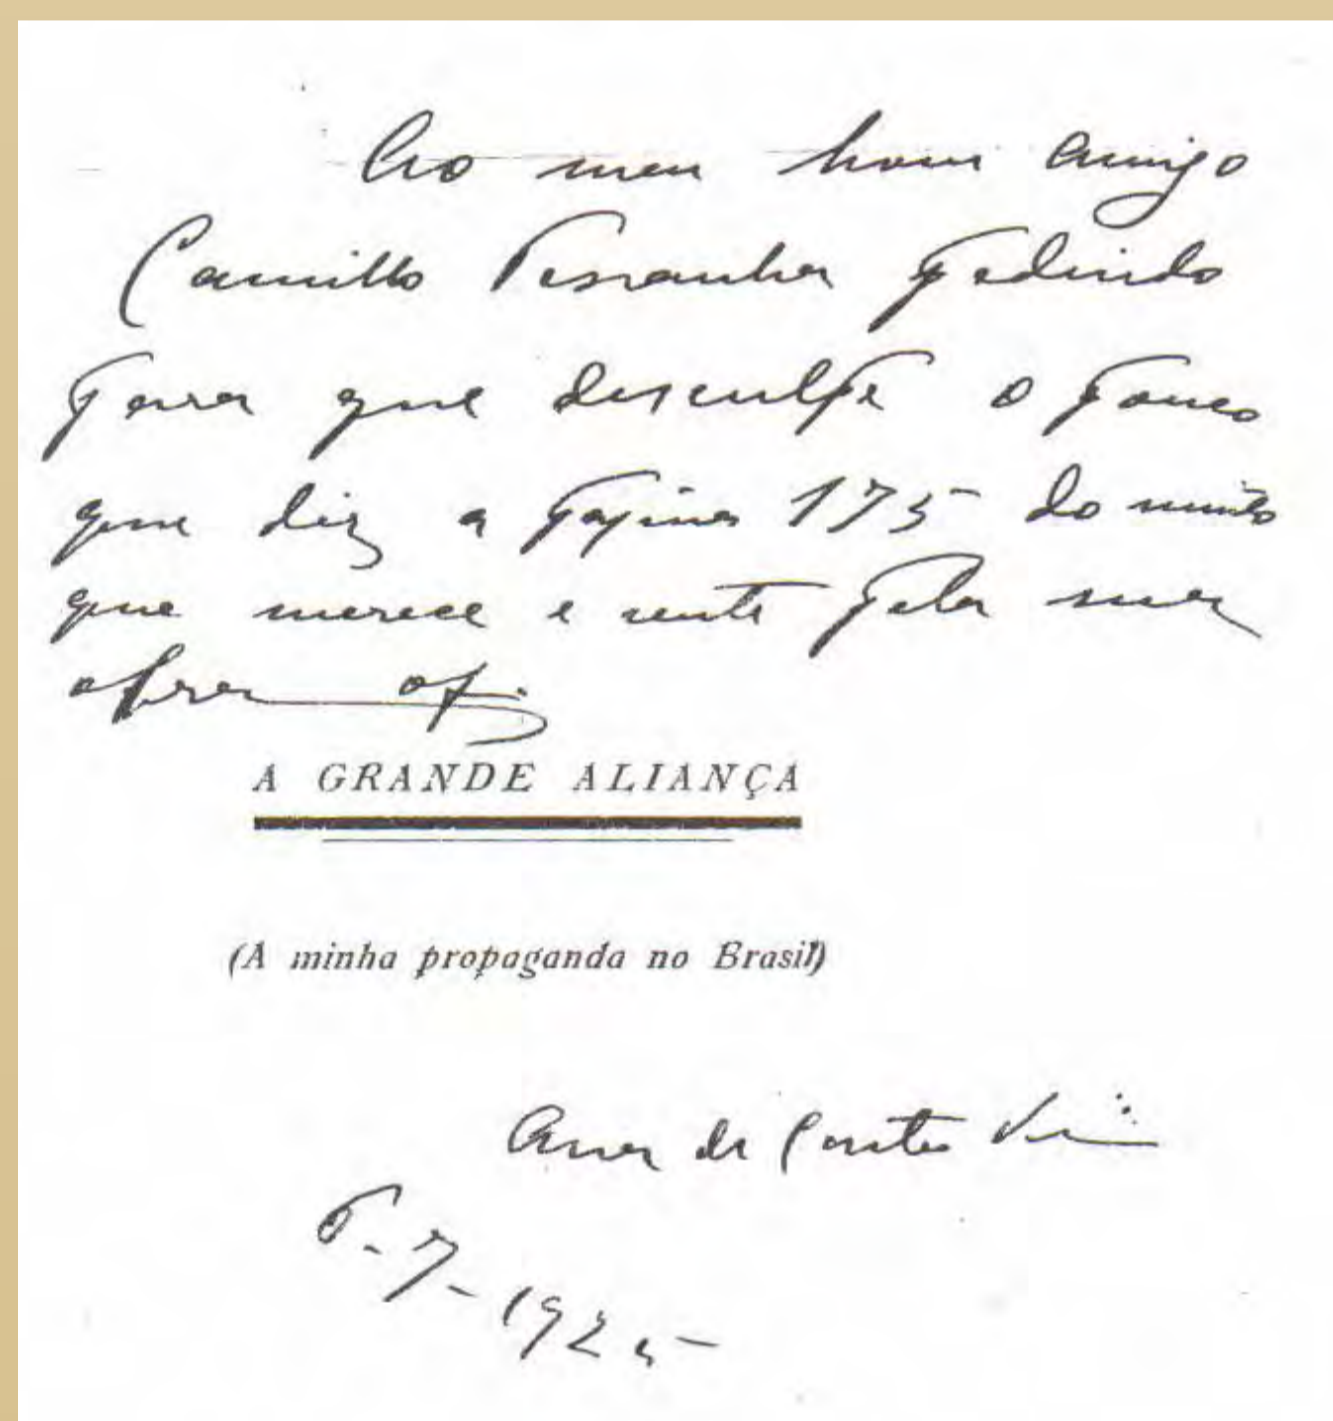 Ao meu bom amigo
Camillo Pessanha pedindo
para que desculpe o pouco
que diz a pagina 175 do muito
que merece e sente pela sua
obra
A GRANDE ALIANÇA
(A minha propaganda no Brasil)
Ana de Castro
7-1925